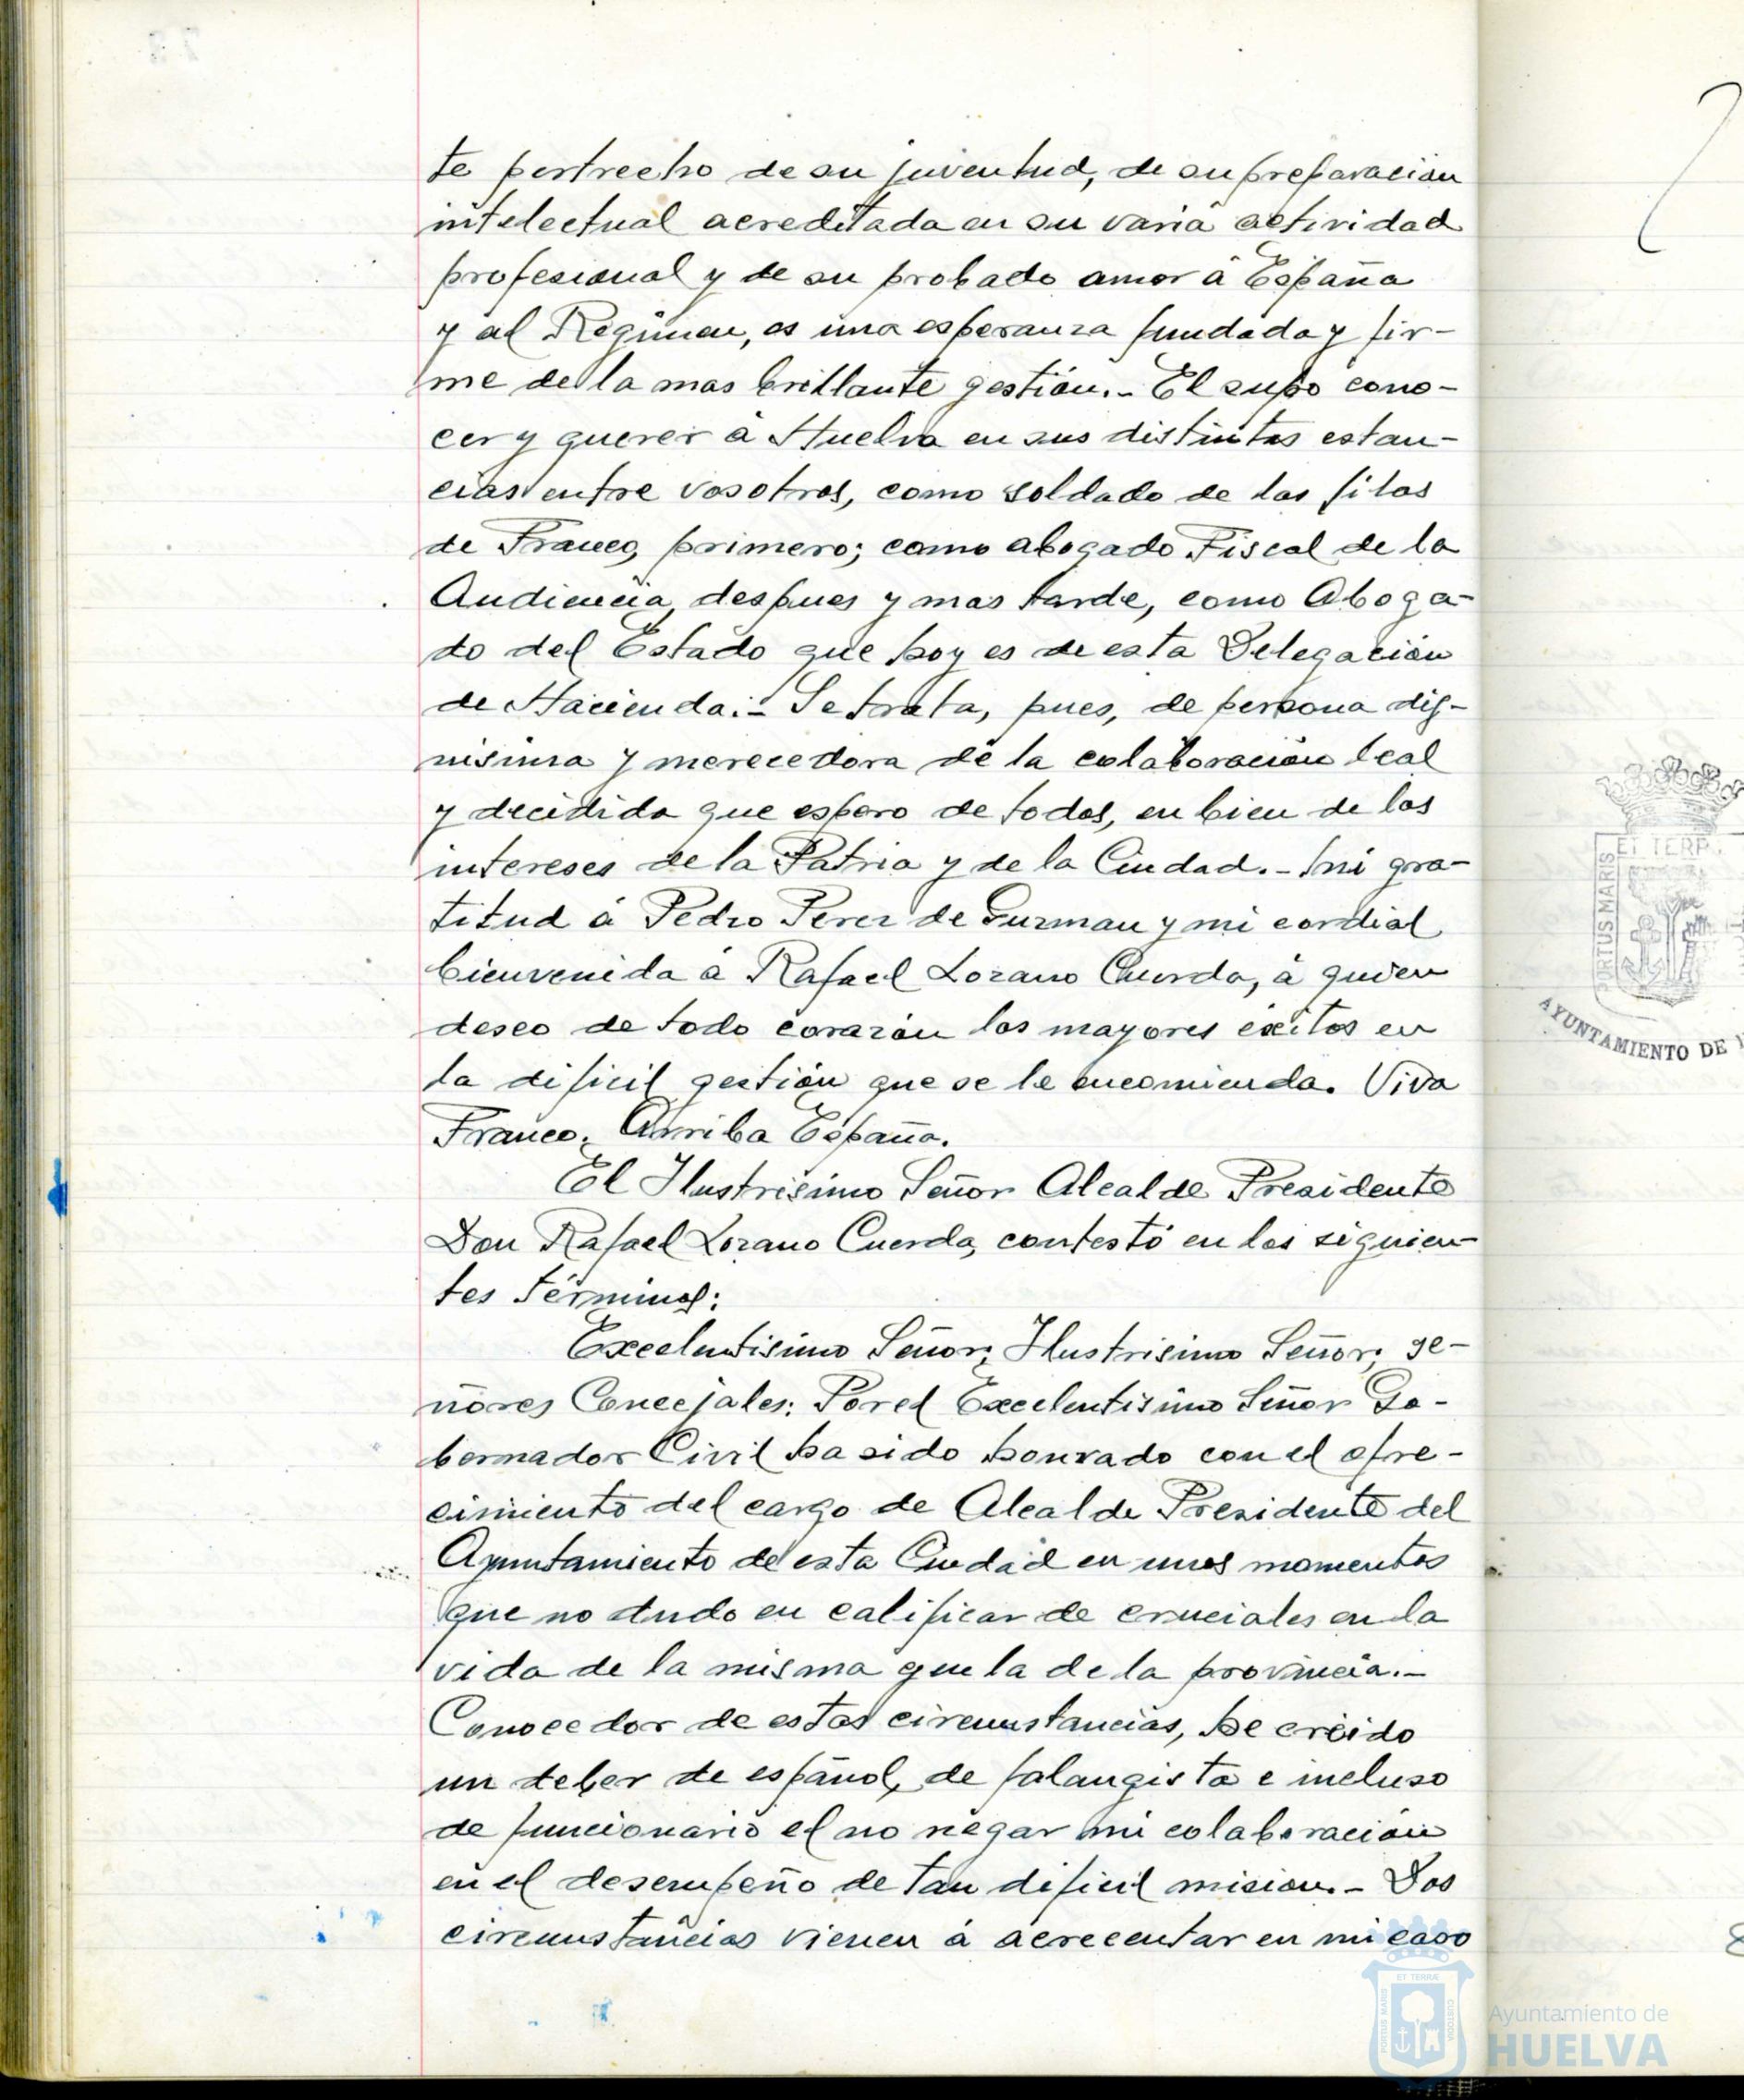 te pertrecho de su juventud, de su preparación
intelectual acreditada en su varia actividad
profesional y de su probado amor á España
y al Regimen, es una esperanza fundada y fir-
me de la mas brillante gestión.- El supo cono-
cer y querer á Huelva en sus distintas estan-
cias entre vosotros, como soldado de las filas
de Franco, primero; como abogado Fiscal de la
Audiencia, despues y mas tarde, como Aboga-
do del Estado que hoy es de esta Delegación
de Hacienda.- Se trata, pues, de persona dig-
nisima y merecedora de la colaboración leal
y decidida que espero de todos, en bien de los
intereses de la Patria y de la Ciudad.- Mi gra-
titud á Pedro Perez de Guzman y mi cordial
bienvenida á Rafael Lozano Cuerda, á quien
deseo de todo corazón los mayores éxitos en
la dificil gestión que se le encomienda. Viva
Franco. Arriba España.
El Ilustrisimo Señor Alcalde Presidente
Don Rafael Lozano Cuerda, contestó en los siguien-
tes términos:
Excelentisimo Señor; Ilustrisimo Señor; se-
ñores Concejales: Por el Excelentisimo Señor Go-
bernador Civil ha sido honrado con el ofre-
cimiento del cargo de Alcalde Presidente del
Ayuntamiento de esta Ciudad en unos momentos
que no dudo en calificar de cruciales en la
vida de la misma que la de la provincia.-
Conocedor de estas circunstancias, he creido
un deber de español, de falangista e incluso
de funcionario el no negar mi colaboración
en el desempeño de tan dificil mision.- Dos
circunstancias vienen á acrecentar en mi caso
ET TERR
PORTUS MARIS
AYUNTAMIENTO DE
ET TERRÆ
PORTUS MARIS
CUSTODIA
Ayuntamiento de
HUELVA